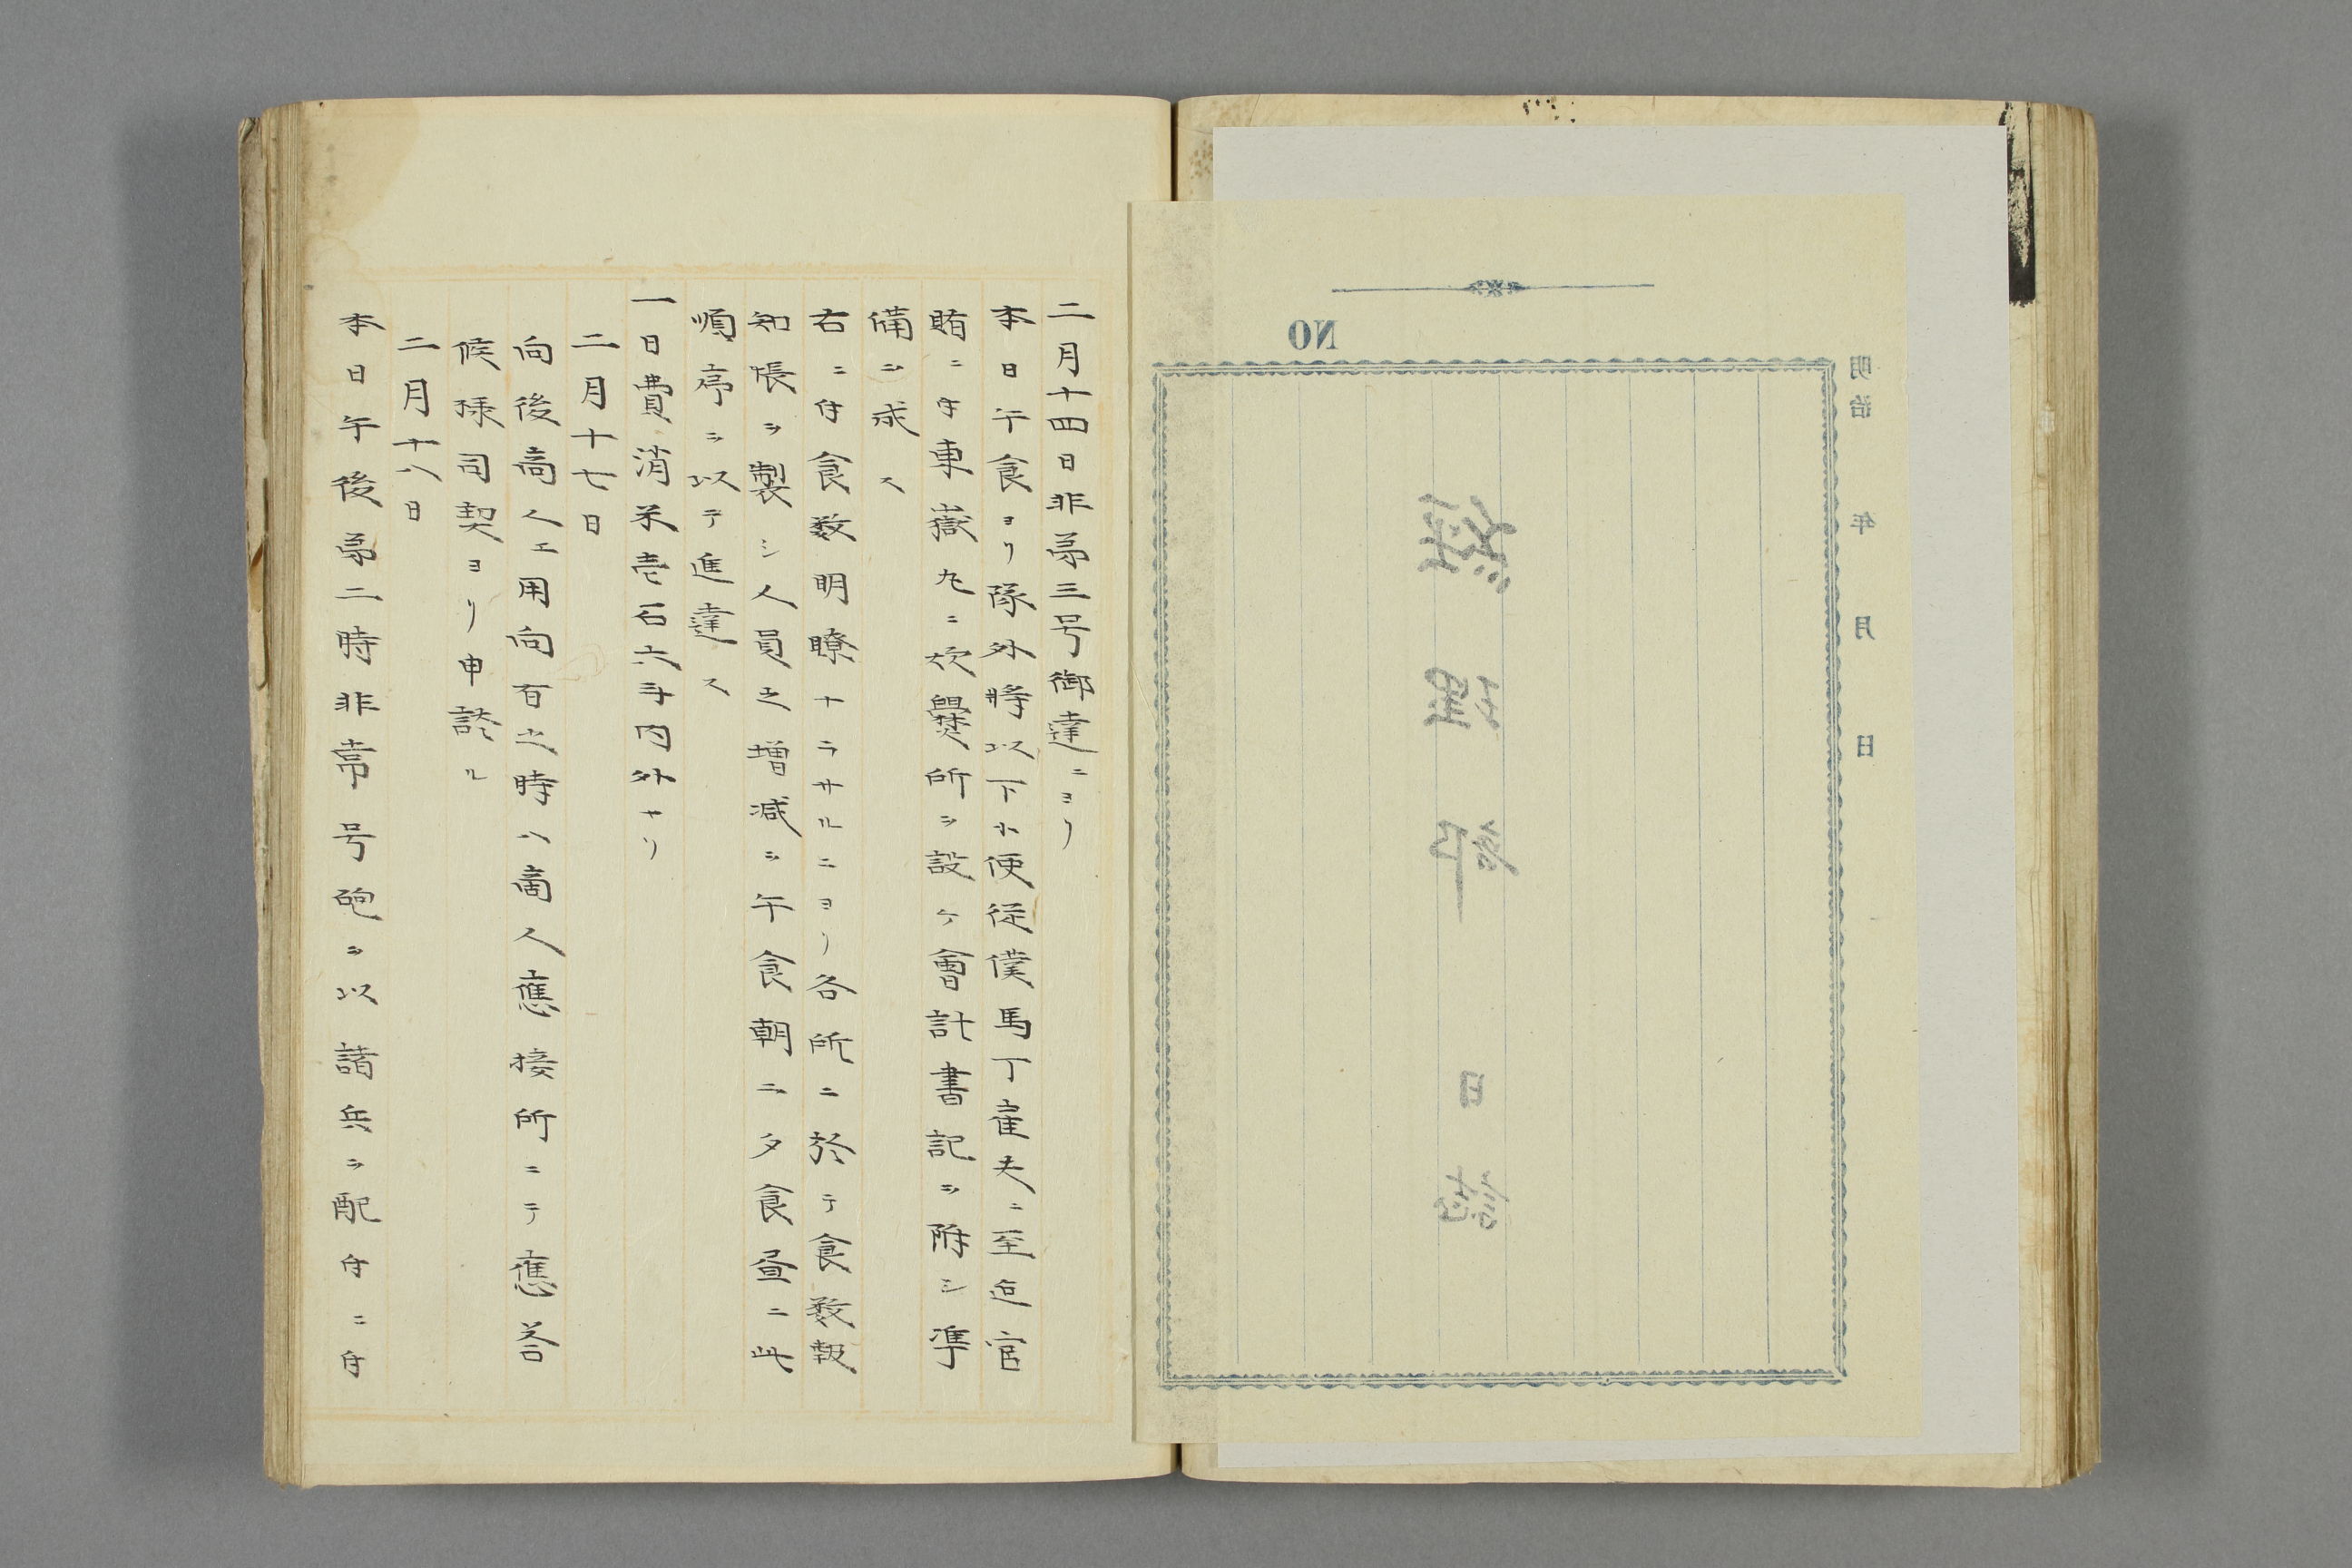 明治　年　月　日
NO
經理部　日誌
二月十四日非第三号御達ニヨリ
本日午食ヨリ隊外將以下小使従僕馬丁雇夫ニ至迠官
賄ニ付東嶽丸ニ炊爨所ヲ設ケ會計書記ヲ除シ準
備ヲ成ス
右ニ付食数明瞭ナラサルニヨリ各所ニ於テ食数報
知帳ヲ製シ人員之増减ヲ午食朝ニ夕食昼ニ此
順序ヲ以テ進達ス
一日費消米壱石六斗内外ナリ
二月十七日
向後商人エ用向有之時ハ商人應接所ニテ應答
候様司契ヨリ申談ル
二月十八日
本日午後第二時非常号砲ヲ以諸兵ヲ配付ニ付